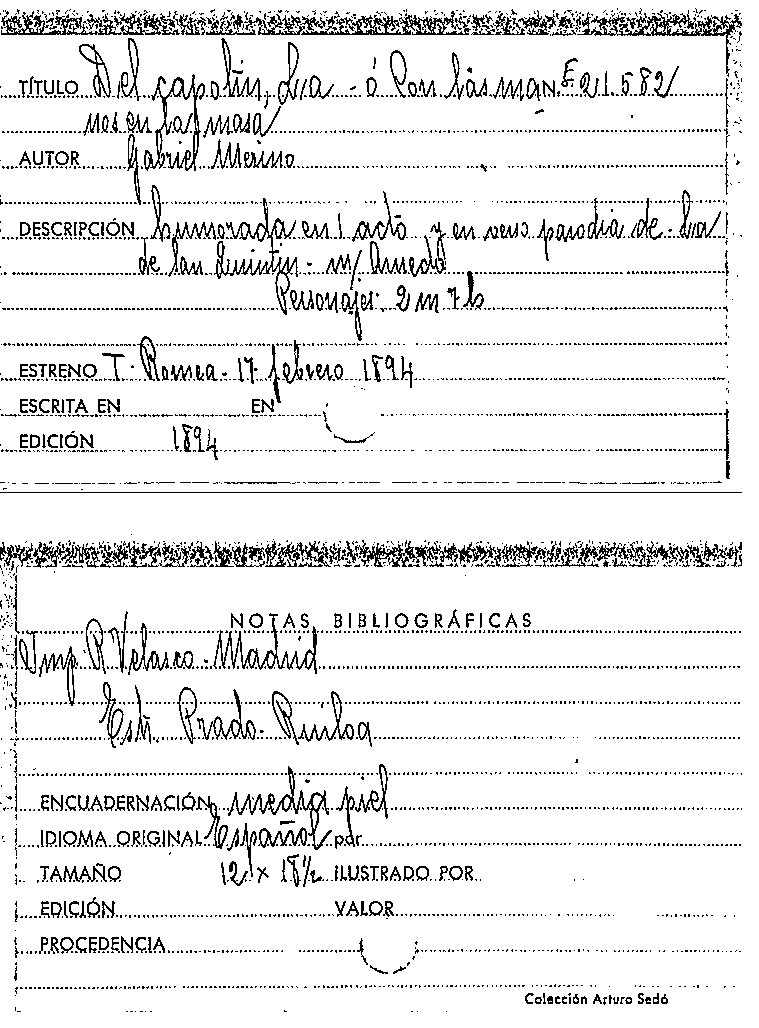 TÍTULO Del capotín, La - ó Con las ma E-21.582
nos en la masa
AUTOR Gabriel Merino
DESCRIPCIÓN humorada en 1 acto y en verso parodia de - La
de San Quintín - m/
Personajes: 2 m 7 h
ESTRENO T. Romea - 17 febrero 1894
ESCRITA EN EN
EDICIÓN 1894
NOTAS BIBLIOGRÁFICAS
Imp. R Velasco - Madrid
Estr. Prado -
ENCUADERNACIÓN media piel
IDIOMA ORIGINAL Español por
TAMAÑO 12 x 18½ ILUSTRADO POR
EDICIÓN VALOR
PROCEDENCIA
Colección Arturo Sedó